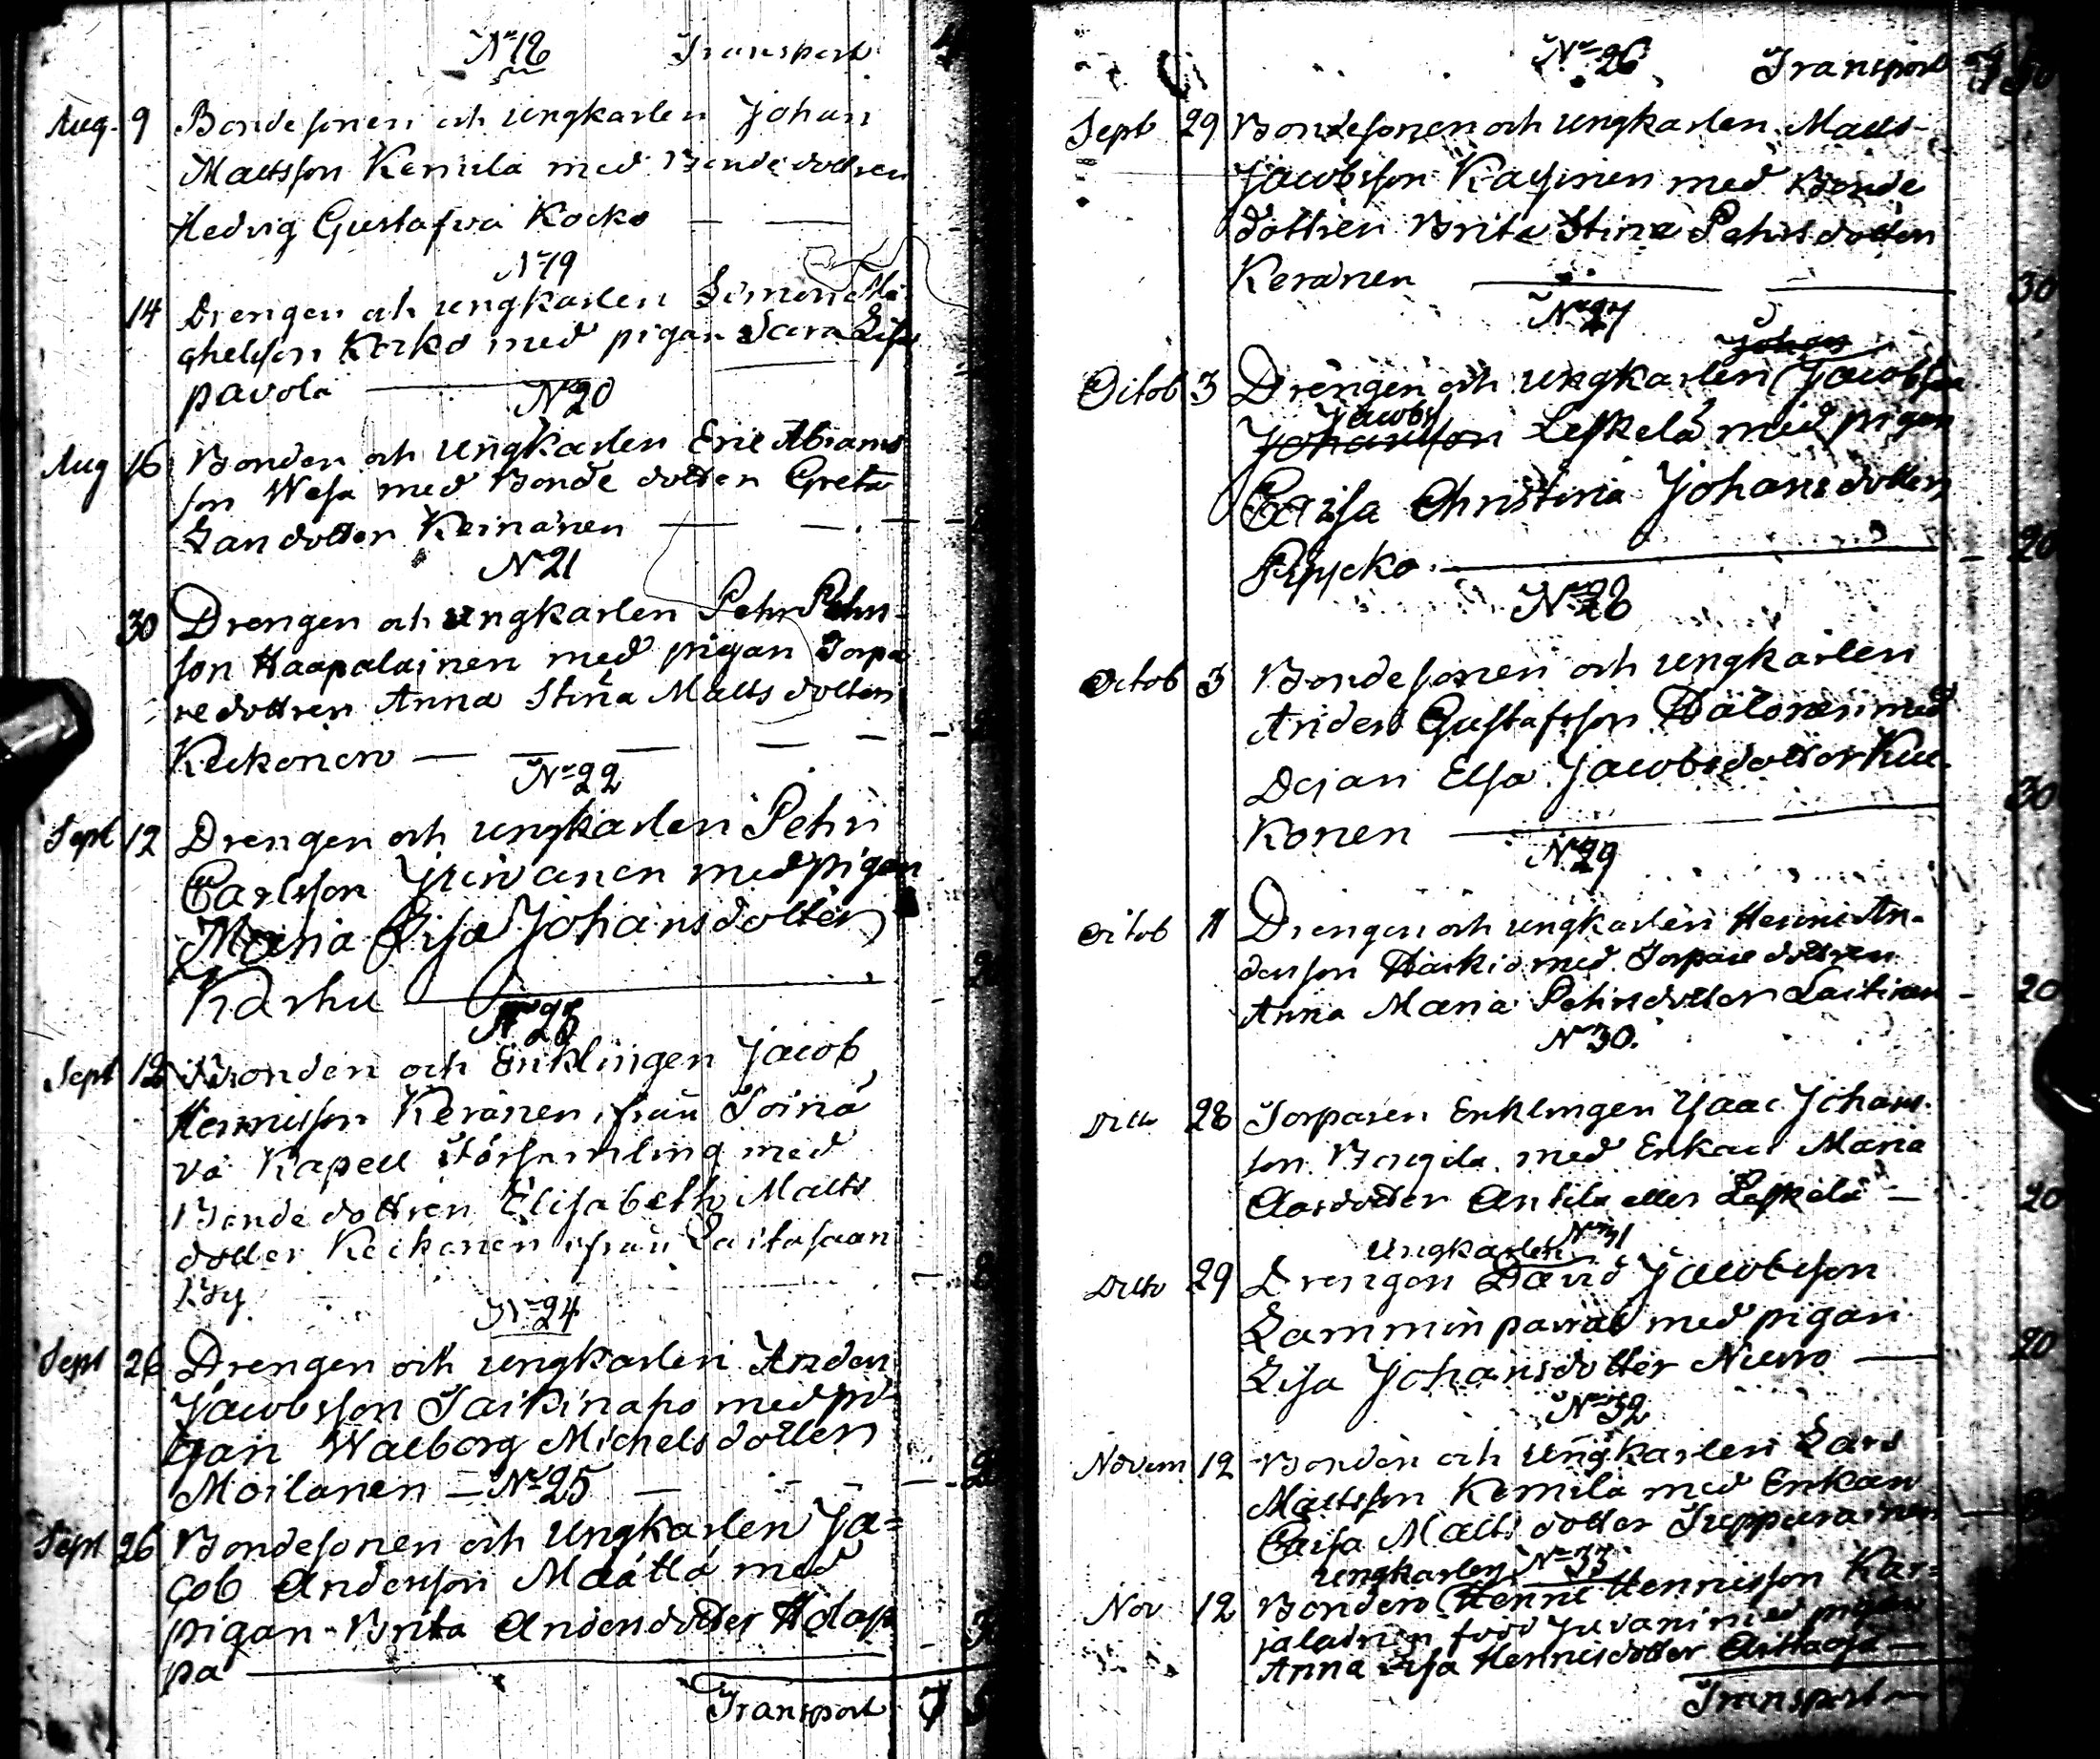 N° 18 Transport
Aug. 9 Bondesonen och ungkarlen Johan
Mattsson Kemilä med Bonde dottren
Hedvig Gustafva Kocko
N° 19
14 Drengen och ungkarlen Simon Mi-
chelsson Kocko med pigan Sara Lisa
pavola
N° 20
Aug 16 Bonden och Ungkarlen Eric Abrams
son Wesa med Bonde dotter Greta
Larsdotter Keinänen
N° 21
30 Drengen och ungkarlen Pehr Pehrs-
son Haapalainen med pigan Torpa
re dottren Anna Stina Matts dotter
Keckonen
N° 22
Sept 12 Drengen och ungkarlen Pehr
Carlsson med pigan
Maria Lisa Johansdotter
Karhu
N° 23
Sept 12 Bonden och Enklingen Jacob
Hennisson Keränen, från Soina
va Kapell Församling med
Bonde dottren Elisabeth Matts
dotter Keckonen ifrån Laitasaari
By
N° 24
Sept 26 Drengen och ungkarlen Anders
Jacobsson med pi-
gan Walborg Michelsdotter
Moilanen N° 25
Sept 26 Bondesonen och Ungkarlen Ja=
cob Andersson Määttä med
pigan Brita Andersdotter Holap
pa
Transport 7
N° 26 Transport
Sept 29 Bondesonen och ungkarlen Matts
Jacobsson med Bonde
dottren Brita Stina Pehrsdotter
Keränen 30
N° 27
Johan
Octob 3 Drengen och ungkarlen Jacobsson
Jacobs
Johansson Leskelä med pigan
Caisa Christina Johansdotter
20
N° 28
Octob 3 Bondesonen och ungkarlen
Anders Gustafsson Hälonen med
Dejan Elsa Jacobsdotter Kec-
konen 30
N° 29
Octob 11 Drengen och ungkarlen Henric An-
dersson Harkio med Torpare dottren
Anna Maria Pehrsdotter Laitinen 20
N° 30.
Ditto 28 Torparen Enklingen Isaac Johans-
son med Enkan Maria
Antila eller Leskelä 20
N° 31
Ungkarlen
Ditto 29 Drengen David Jacobsson
Lamminpaivä med pigan
Lisa Johansdotter Niemo 20
N° 32
Novem 12 Bonden och ungkarlen Lars
Mattsson Kemilä med Enkan
Caisa Matts dotter Seppeirainen
ungkarlen N° 33
Nov 12 Bonden Henric Hennisson Kar=
jalainen född Juvani med pigan
Anna Lisa Hennisdotter
Transport